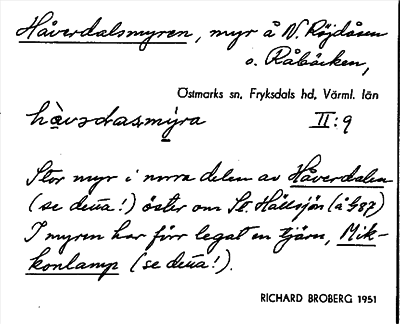 Håverdalsmyren, myr å N. Röjdåsen
o. Råbäcken,
Östmarks sn, Fryksdals hd, Värml. län
hàvsdasmýra II:9
Stor myr i norra delen av Håverdalen
(se detta!) öster om St. Hällsjön (å G87)
I myren har förr legat en tjärn, Mik-
konlamp (se detta!).
RICHARD BROBERG 1951